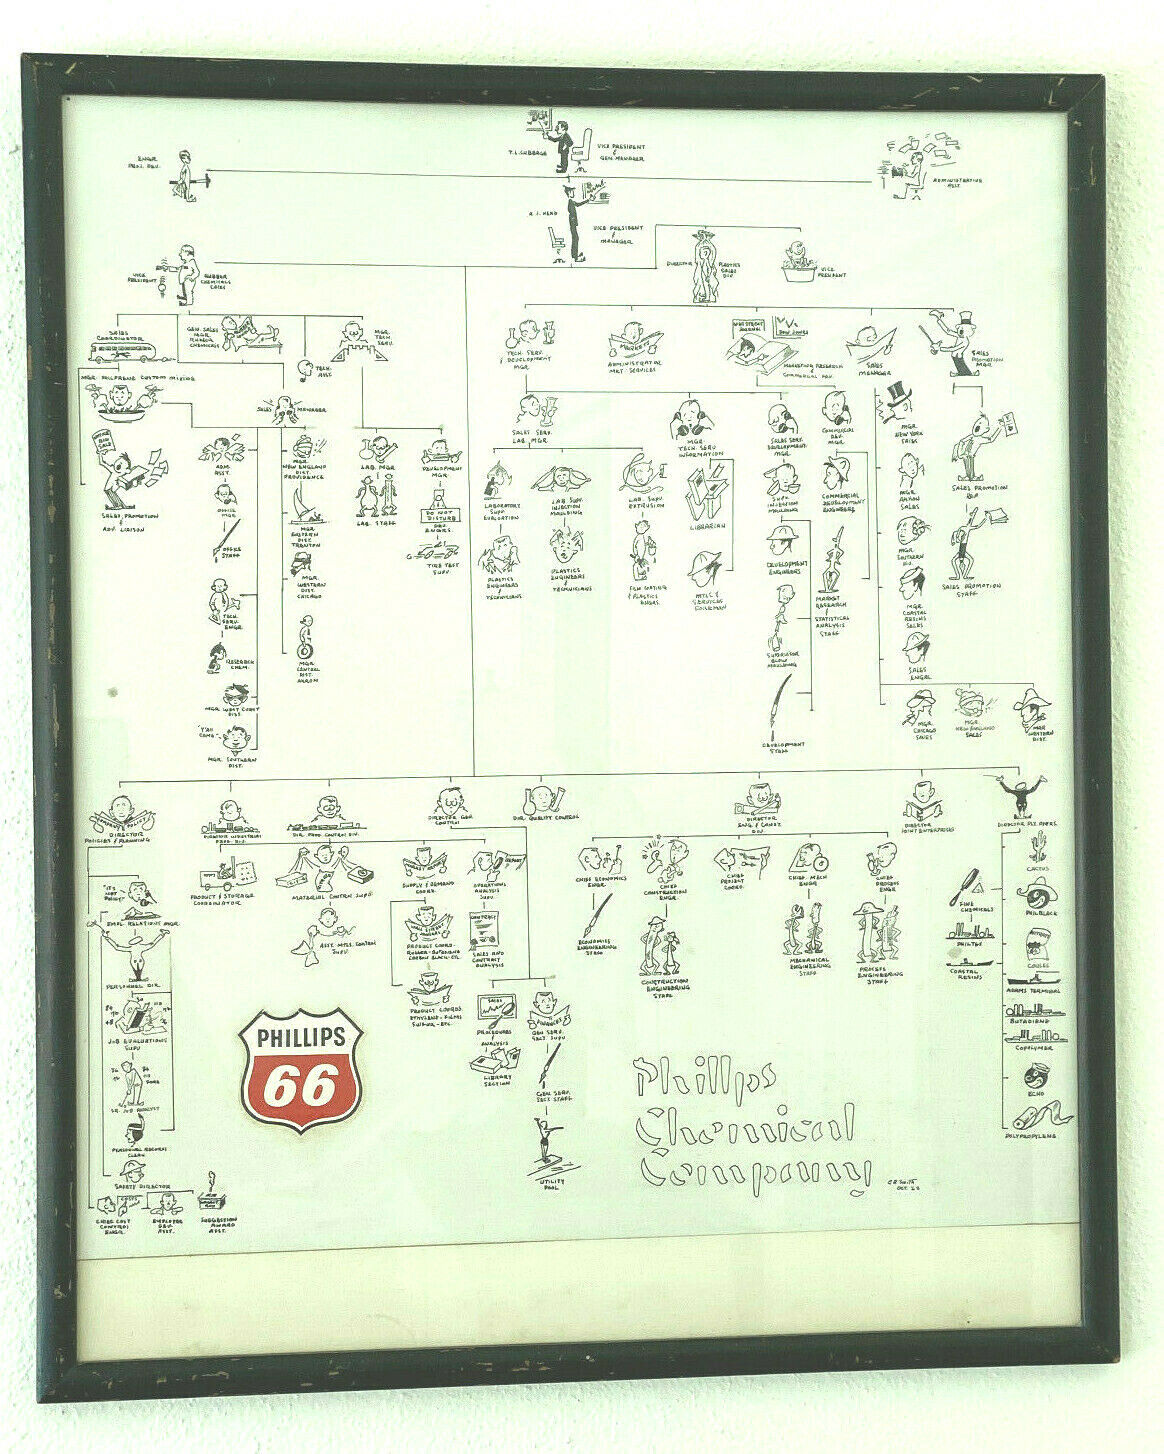 ENGR.
T.L. CUBBAGE
VICE PRESIDENT
&
GEN. MANAGER
ADMINISTRATIVE
ASST.
VICE PRESIDENT
&
MANAGER
VICE
PRESIDENT
RUBBER
CHEMICALS
SALES
DIRECTOR
PLASTICS
SALES
DIV.
VICE
PRESIDENT
SALES
COORDINATOR
GEN. SALES
MGR.
RUBBER
CHEMICALS
MGR.
TECH.
SERV.
TECH.
ASST.
TECH. SERV.
&
DEVELOPMENT
MGR.
MARKETS
ADMINISTRATOR
MKT. SERVICES
WALL STREET
JOURNAL
DOW JONES
MARKETING RESEARCH
&
COMMERCIAL DEV.
SALES
MANAGER
SALES
PROMOTION
MGR.
MGR. PHILPRENE CUSTOM MIXING
SALES MANAGER
SALES PROMOTION
&
ADV. LIAISON
ADM.
ASST.
OFFICE
MGR.
OFFICE
STAFF
TECH.
SERV.
ENGR.
RESEARCH
CHEM.
MGR. WEST COAST
DIST.
"Y'ALL
COME"
MGR. SOUTHERN
DIST.
MGR.
NEW ENGLAND
DIST.
PROVIDENCE
MGR.
EASTERN
DIST.
TRENTON
MGR.
WESTERN
DIST.
CHICAGO
MGR.
CENTRAL
DIST.
AKRON
LAB. MGR.
LAB. STAFF
DEVELOPMENT
MGR.
DO NOT
DISTURB
DEV.
ENGRS.
TIRE TEST
SUPV.
SALES SERV.
LAB. MGR.
LABORATORY
SUPV.
EVALUATION
PLASTICS
ENGINEERS
&
TECHNICIANS
LAB SUPV.
INJECTION
MOULDING
PLASTICS
ENGINEERS
& TECHNICIANS
LAB. SUPV.
EXTRUSION
FILM COATING
& PLASTICS
ENGRS.
MGR.
TECH. SERV.
INFORMATION
LIBRARIAN
MTLS &
SERVICES
FOREMAN
SALES SERV.
DEVELOPMENT
MGR.
SUPV.
INJECTION
MOULDING
DEVELOPMENT
ENGINEERS
SUPERVISOR
BLOW
MOULDING
DEVELOPMENT
STAFF
COMMERCIAL
DEV.
MGR.
COMMERCIAL
DEVELOPMENT
ENGINEERS
MARKET
RESEARCH
&
STATISTICAL
ANALYSIS
STAFF
MGR.
NEW YORK
SALES
MGR.
AKRON
SALES
MGR.
SOUTHERN
MGR.
COASTAL
RESINS
SALES
SALES
ENGRS.
MGR.
CHICAGO
SALES
MGR.
NEW ENGLAND
SALES
MGR.
WESTERN
DIST.
SALES PROMOTION
SALES PROMOTION
STAFF
DIRECTOR
POLICIES & PLANNING
DIRECTOR INDUSTRIAL
PROD. DIV.
DIR. PROD. CONTROL DIV.
DIRECTOR GEN
CONTROL
DIR. QUALITY CONTROL
DIRECTOR
ENG. & CONST.
DIV.
DIRECTOR
JOINT ENTERPRISES
"IT'S
NOT
POLICY"
EMPL. RELATIONS MGR.
PERSONNEL DIR.
JOB EVALUATIONS
SUPV
SR. JOB ANALYST
PERSONNEL RECORDS
SAFETY DIRECTOR
COSTS
CHIEF COST
CONTROL
ENGR.
EMPLOYEE
DEV.
ASST.
SUGGESTION
AWARD
ASST.
PRODUCT & STORAGE
COORDINATOR
MATERIAL CONTROL SUPV.
ASST. MTLS. CONTROL
SUPV.
SUPPLY & DEMAND
COORD.
WALL STREET
JOURNAL
PRODUCT COORD.
RUBBER - BUTADIENE
CARBON BLACK - ETC.
PRODUCT COORDS
ETHYLENE - FILMS
SULFUR - ETC.
REPORT
OPERATIONS
ANALYSIS
SUPV
CONTRACT
SALES AND
CONTRACT
ANALYSIS
SALES
PROCEDURES
&
ANALYSIS
LIBRARY
SECTION
FINANCES
GEN SERV.
SECT. SUPV
GEN. SERV.
SECT STAFF
UTILITY
POOL
CHIEF ECONOMICS
ENGR.
ECONOMICS
ENGINEERING
STAFF
CHIEF
CONSTRUCTION
ENGR.
CONSTRUCTION
ENGINEERING
STAFF
CHIEF
PROJECT
COORD.
CHIEF MECH
ENGR
MECHANICAL
ENGINEERING
STAFF
CHIEF
PROCESS
ENGR
PROCESS
ENGINEERING
STAFF
FINE
CHEMICALS
PHILTEX
COASTAL
RESINS
CACTUS
PHILBLACK
ADAMS TERMINAL
BUTADIENE
COPOLYMER
ECHO
POLYPROPYLENE
PHILLIPS
66
Phillips
Chemical
Company